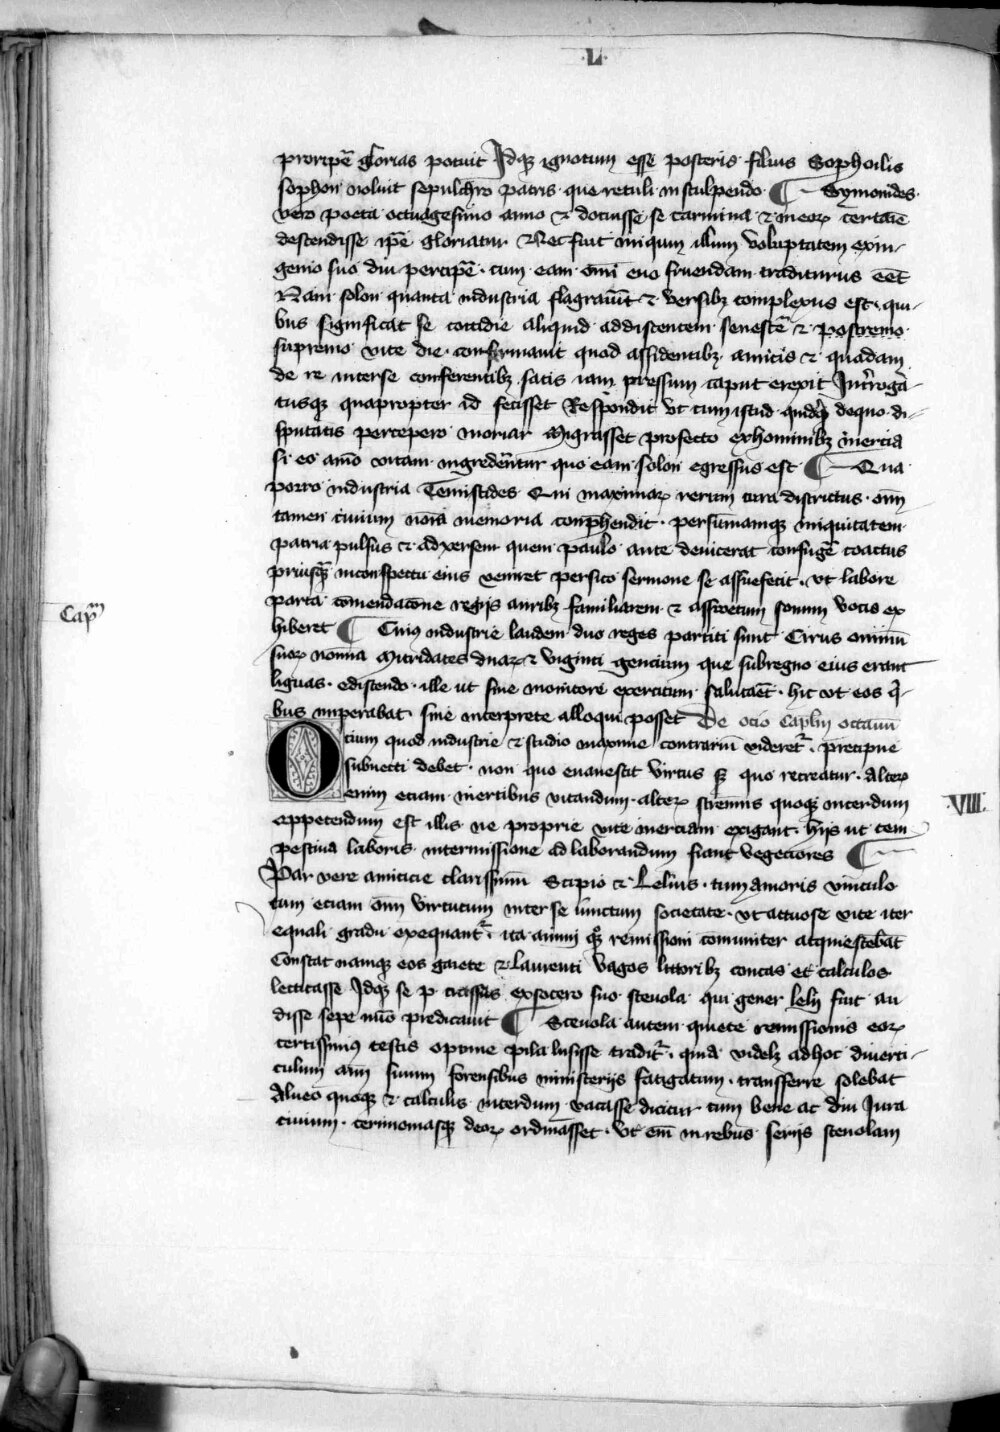 .L.
proripe glorias potuit Idque ignotum esse posteris filius Sophoilis
sophon noluit sepulchro patris que retuli insculpendo ¶ Symonides
vero poeta octuagesimo anno & docuisse se carmina & in eorum certamen
descendisse ipse gloriatur Nec fuit iniquum illum voluptatem ex in-
genio suo diu percipere cum eam omni euo fruendam traditurus esset
Nam solon quanta industria flagrauerit & versibus complexus est qui-
bus significat se cottidie aliquid addiscentem senescere & postremo
supremo vite die confirmauit quod assidentibus amicis & quadam
de re inter se conferentibus satis iam pressum caput erexit Interroga-
tusque quapropter id fecisset Respondit vt cum istud quidquid de quo di-
sputatis percepero moriar Migrasset profecto ex hominibus inercia
si eo animo vitam ingrederentur quo eam solon egressus est ¶ Qua
porro industria Temistides Qui maximarum rerum cura districtus omnium
tamen ciuium nomina memoria comprehendit per summamque iniquitatem
patria pulsus & ad xersem quem paulo ante deuicerat confugere coactus
priusquam in conspectu eius veniret persico sermone se assuefecit vt labore
parta comendacione regijs auribus familiarem & assuetum sonum vocis ex
hiberet ¶ Cuius industrie laudem duo reges partiti sunt Cirus omnium
suorum nomina Mitridates duarum & viginti gencium que sub regno eius erant
liguas ediscendo ille ut sine monitore exercitum salutaret hic vt eos qui-
bus imperabat sine interprete alloqui posset De ocio Caplm octauum
Ocium quod industrie & studio maxime contrarium videretur precipue
subnecti debet non quo euanescit virtus sed quo recreatur Alterum
enim eciam inertibus vitandum alterum strennis quoque interdum
appetendum est illis ne proprie vite inerciam exigant hijs ut tem
pestiua laboris intermissione ad laborandum fiant vegeciores ¶
Par vere amicicie clarissimum Scipio & Lelius tum amoris vinculo
tum eciam omnium virtutum inter se iunctum societate vt actuose vite iter
equali gradu exequantur ita animi quoque remissioni comuniter acquiescebant
Constat namque eos gaiete & laurenti vagos littoribus concas et calculos
lectitasse Idque se p crassus ex socero suo sceuola qui gener lelij fuit au
disse sepe numero predicauit ¶ Sceuola autem quiete remissionis eorum
certissimus testis optime pila lusisse traditur quia videlicet ad hoc diuerti-
culum animum suum forensibus ministerijs fatigatum transferre solebat
Alueo quoque & calculis interdum vacasse dicitur cum bene ac diu Jura
ciuium cerimoniasque deorum ordinasset Vt enim in rebus serijs sceuolam
Capm
VIII.